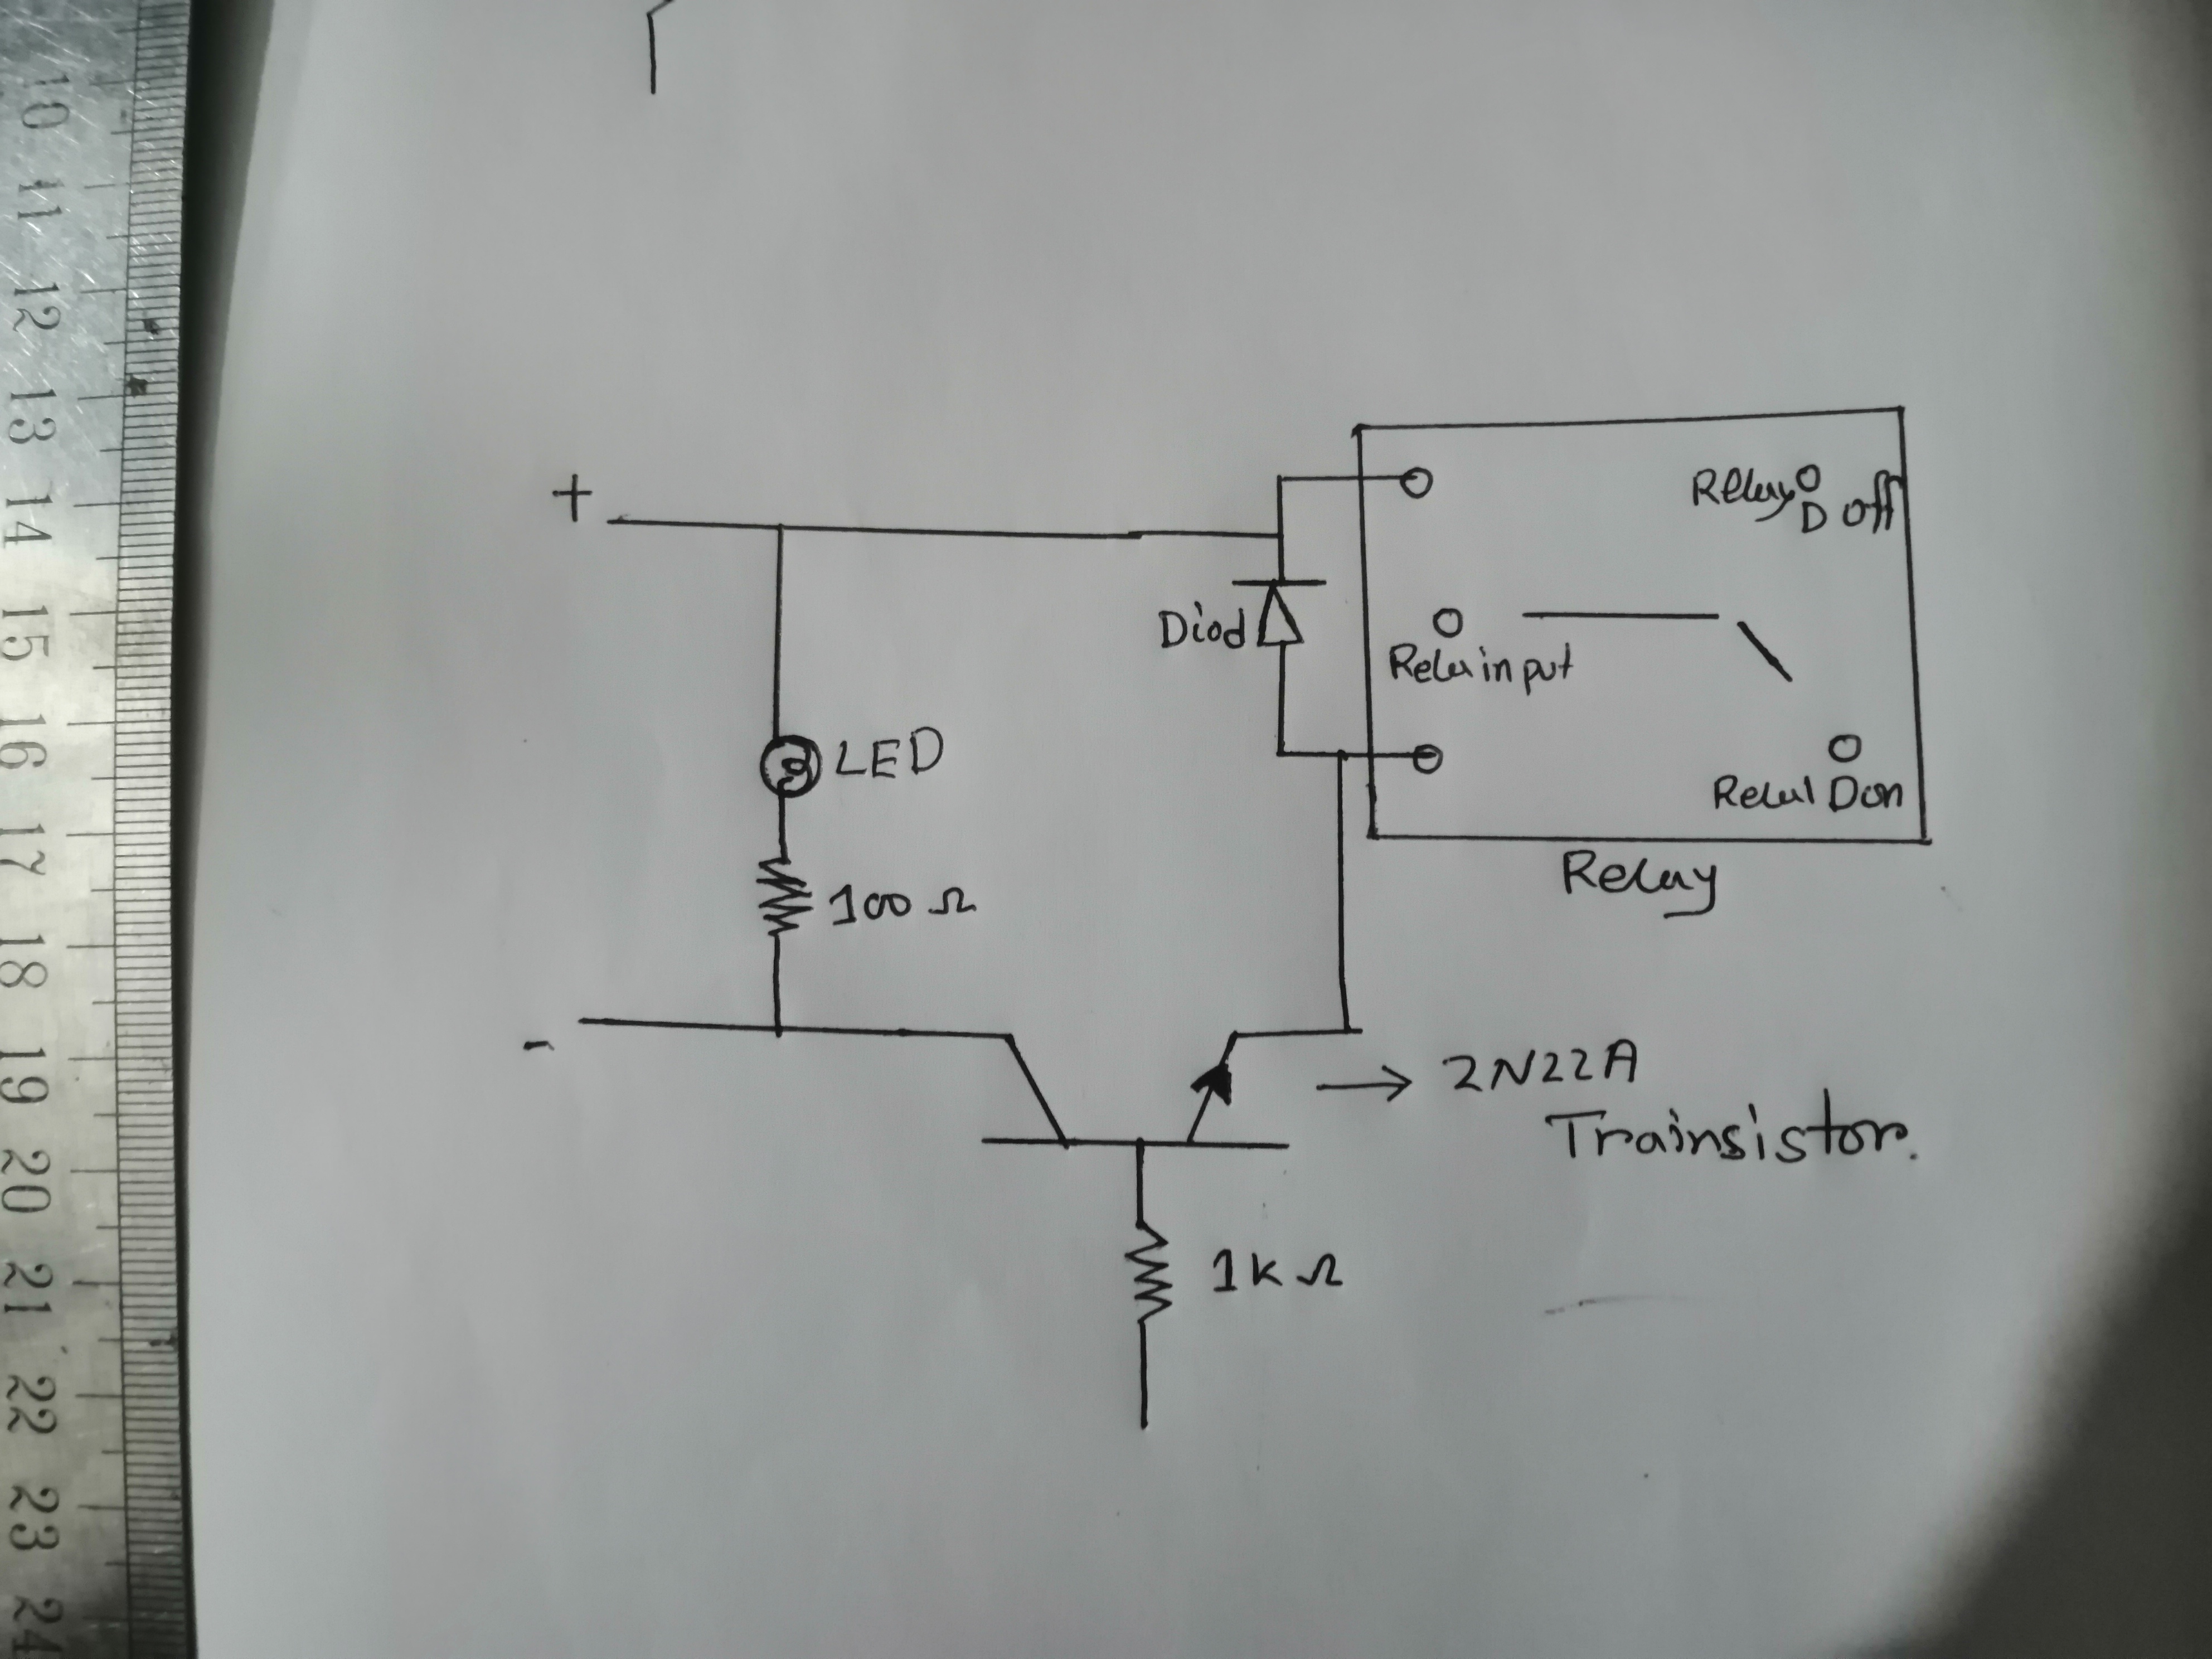 10
11
12
13
14
15
16
17
18
19
20
21
22
23
24
+
Relay
D off
Diod
input
LED
Don
100 Ω
Relay
-
2N22A
Trainsistor.
1K Ω